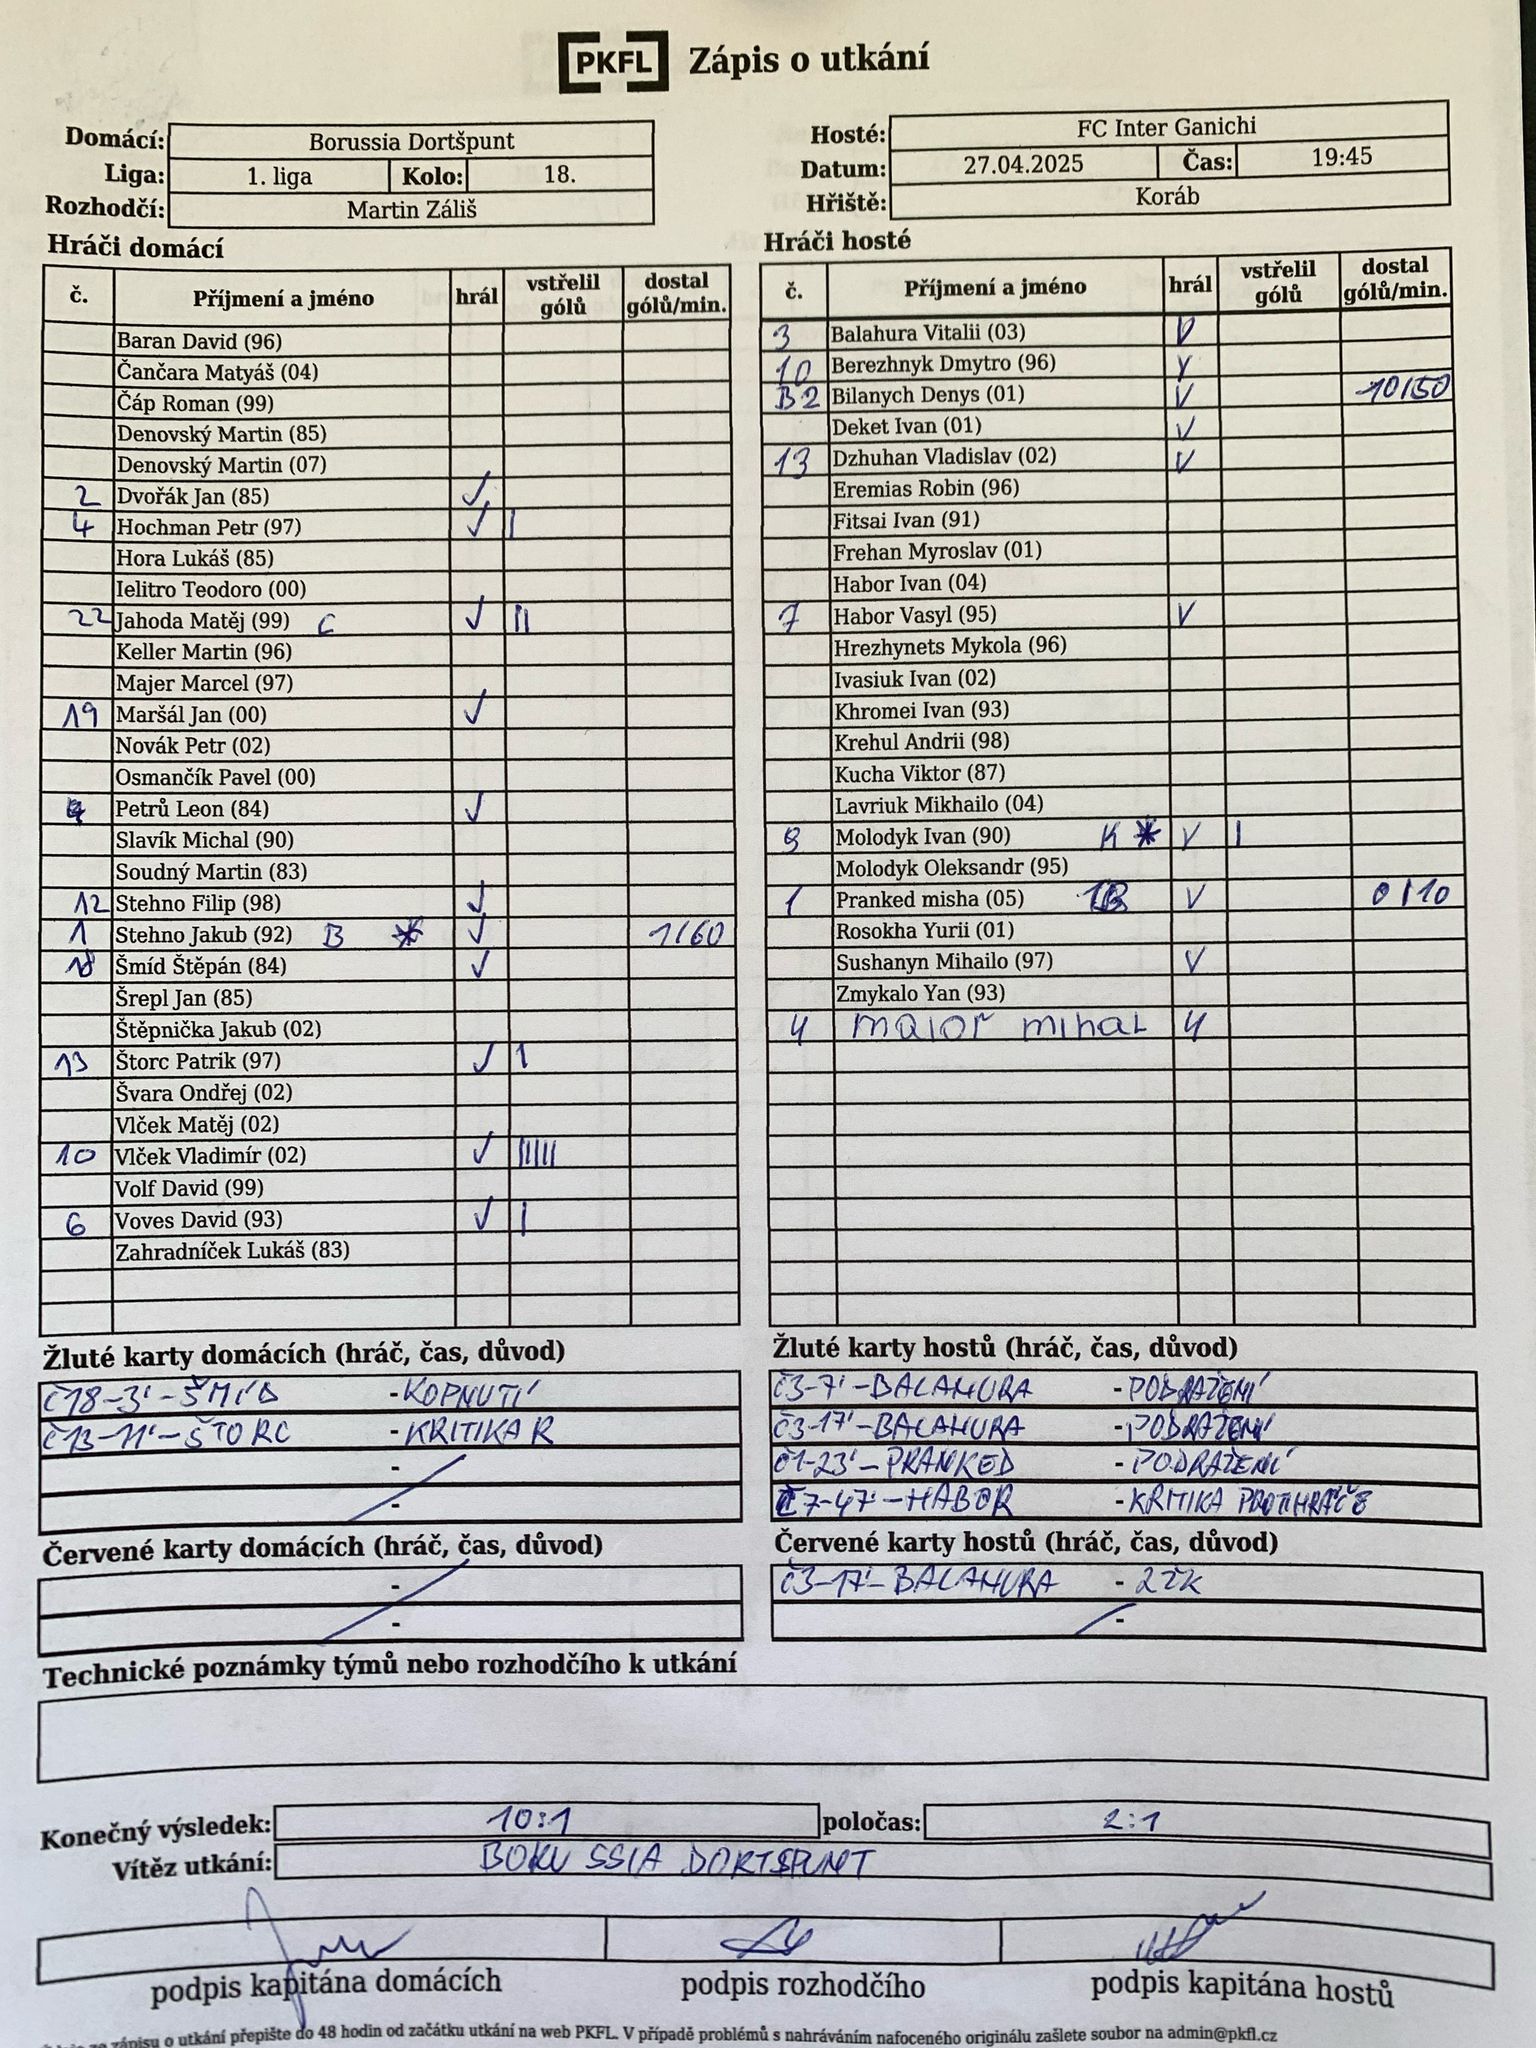 PKFL Zápis o utkání
Domácí: Borussia Dortšpunt
Liga: 1. liga Kolo: 18.
Rozhodčí: Martin Záliš
Hosté: FC Inter Ganichi
Datum: 27.04.2025 Čas: 19:45
Hřiště: Koráb
Hráči domácí
č. Příjmení a jméno hrál vstřelil gólů dostal gólů/min.
Baran David (96)
Čančara Matyáš (04)
Čáp Roman (99)
Denovský Martin (85)
Denovský Martin (07)
2 Dvořák Jan (85) ✓
4 Hochman Petr (97) ✓ |
Hora Lukáš (85)
Ielitro Teodoro (00)
22 Jahoda Matěj (99) C ✓ ||
Keller Martin (96)
Majer Marcel (97)
19 Maršál Jan (00) ✓
Novák Petr (02)
Osmančík Pavel (00)
Petrů Leon (84) ✓
Slavík Michal (90)
Soudný Martin (83)
12 Stehno Filip (98) ✓
1 Stehno Jakub (92) B * ✓ 1/60
18 Šmíd Štěpán (84) ✓
Šrepl Jan (85)
Štěpnička Jakub (02)
13 Štorc Patrik (97) ✓ 1
Švara Ondřej (02)
Vlček Matěj (02)
10 Vlček Vladimír (02) ✓ |||||
Volf David (99)
6 Voves David (93) ✓ |
Zahradníček Lukáš (83)
Hráči hosté
č. Příjmení a jméno hrál vstřelil gólů dostal gólů/min.
3 Balahura Vitalii (03) V
10 Berezhnyk Dmytro (96) V
B2 Bilanych Denys (01) V 10/50
Deket Ivan (01) V
13 Dzhuhan Vladislav (02) V
Eremias Robin (96)
Fitsai Ivan (91)
Frehan Myroslav (01)
Habor Ivan (04)
7 Habor Vasyl (95) V
Hrezhynets Mykola (96)
Ivasiuk Ivan (02)
Khromei Ivan (93)
Krehul Andrii (98)
Kucha Viktor (87)
Lavriuk Mikhailo (04)
Molodyk Ivan (90) K * V |
Molodyk Oleksandr (95)
1 Pranked misha (05) V 0/10
Rosokha Yurii (01)
Sushanyn Mihailo (97) V
Zmykalo Yan (93)
4 maior mihal
Žluté karty domácích (hráč, čas, důvod)
Č18-3'-ŠMÍD - KOPNUTÍ
Č13-11'-ŠTORC - KRITIKA R
-
-
Žluté karty hostů (hráč, čas, důvod)
Č3-7'-BALAHURA - PODRAŽENÍ
Č3-17'-BALAHURA - PODRAŽENÍ
Č1-23'-PRANKED - PODRAŽENÍ
Č7-47'-HABOR - KRITIKA PROTIHRÁČE
Červené karty domácích (hráč, čas, důvod)
-
-
Červené karty hostů (hráč, čas, důvod)
Č3-17'-BALAHURA - 2ŽK
-
Technické poznámky týmů nebo rozhodčího k utkání
Konečný výsledek: 10:1 poločas: 2:1
Vítěz utkání: BORUSSIA DORTŠPUNT
podpis kapitána domácích podpis rozhodčího podpis kapitána hostů
zápisu o utkání přepište do 48 hodin od začátku utkání na web PKFL. V případě problémů s nahráváním nafoceného originálu zašlete soubor na admin@pkfl.cz